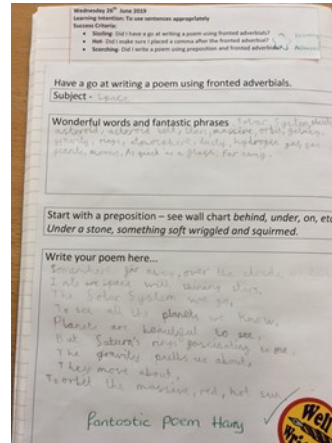 Wednesday 26th June 2019
Learning Intention: To use sentences appropriately
Success Criteria:
Sizzling- Did I have a go at writing a poem using fronted adverbials?
Hot- Did I make sure I placed a comma after the fronted adverbial?
Scorching- Did I write a poem using preposition and fronted adverbials?
Have a go at writing a poem using fronted adverbials.
Subject - Space
Wonderful words and fantastic phrases Solar System
asteroid, asteroid belt, stars, massive, orbit, galaxy,
gravity, rings, atmosphere, dusty, hydrogen gas,
giants, moons, As quick as a flash, Far away.
Start with a preposition – see wall chart behind, under, on, etc
Under a stone, something soft wriggled and squirmed.
Write your poem here...
Somewhere far away, over the clouds,
Into space with shining stars,
The Solar System we go,
To see all the planets we know,
Planets are beautiful to see,
But Saturn's rings fascinating to me,
The gravity pulls us about,
They move about,
To orbit the massive, red, hot sun
fantastic Poem Harry
Well